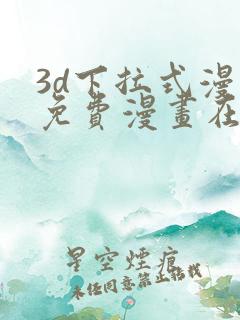 3d下拉式漫
免費漫畫在
星空煙痕
未经同意禁止转载